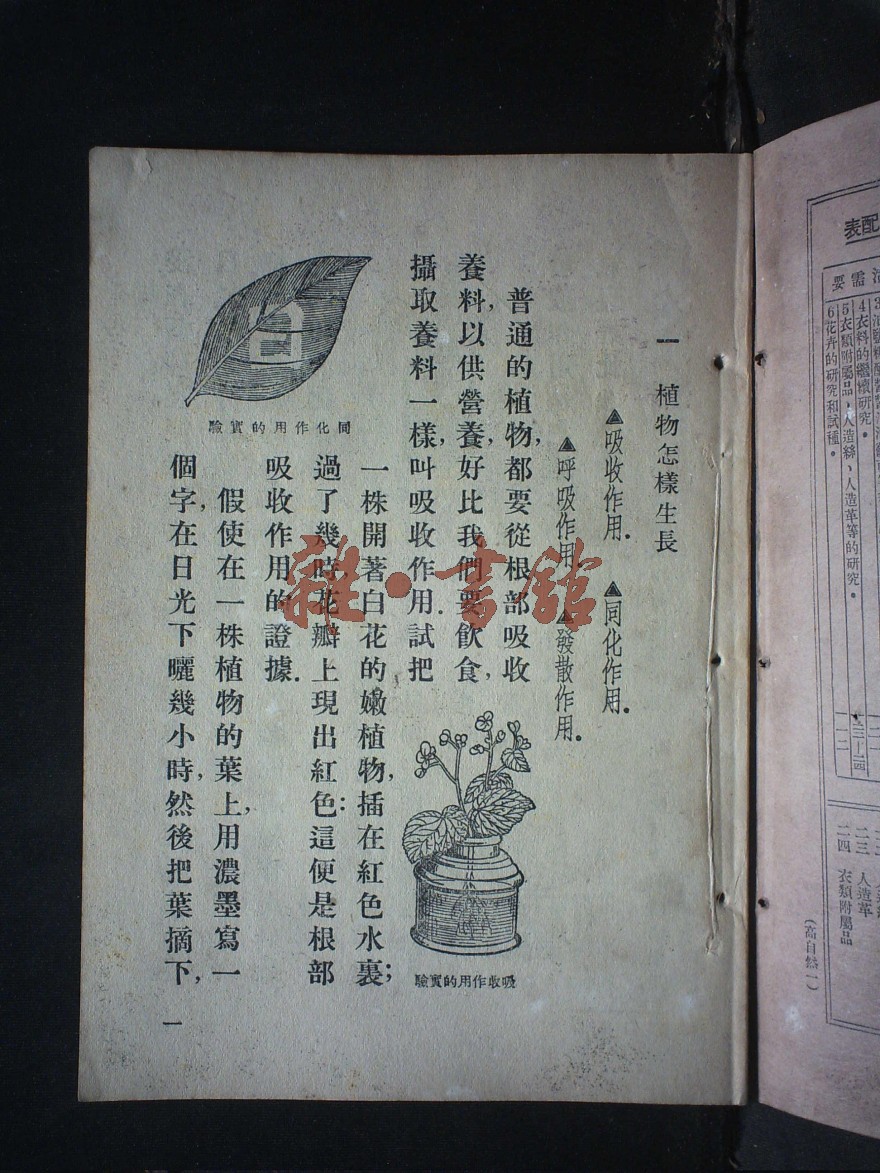 配表
需要
4衣料的纖維研究。
5衣類附屬品、人造絲、人造革等的研究。
6花卉的研究和試種。
二三 人造革
二四 衣類附屬品
(高自然一)
一 植物怎樣生長
▲吸收作用. ▲同化作用.
▲呼吸作用. ▲發散作用.
普通的植物,都要從根部吸收
養料,以供營養,好比我們要飲食,
攝取養料一樣,叫吸收作用.試把
一株開著白花的嫩植物,插在紅色水裏;
過了幾時,花瓣上現出紅色:這便是根部
吸收作用的證據.
假使在一株植物的葉上,用濃墨寫一
個字,在日光下曬幾小時,然後把葉摘下,
吸收作用的實驗
同化作用的實驗
一
雜·書館